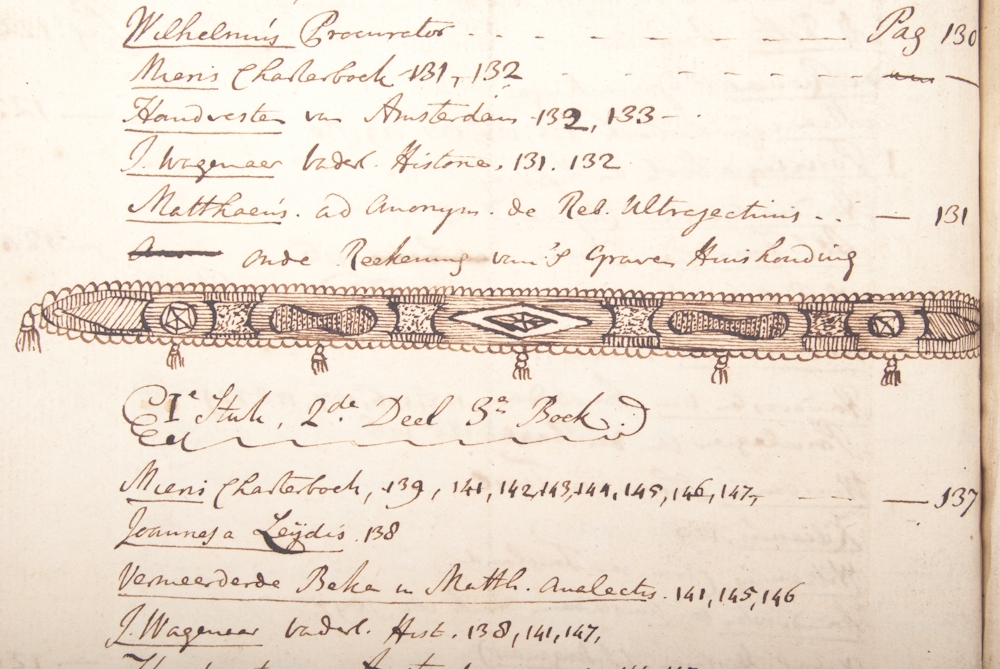 Wilhelmus Procurator - - - - - - - Pag 130
Mieris Charterboek 131, 132 - - - - - -
Handvesten van Amsterdam 132, 133 -
J. Wagenaer Vaderl. Historie. 131. 132
Matthaeus. ad Anonym. de Reb. Ultrajectinis . . — 131
oude Rekening van 'S Graven Huishouding
Ie Stuk, 2de Deel 3e Boek.
Mieris Charterboek, 139, 141, 142, 143, 144, 145, 146, 147, - - — 137
Joannes a Leijdis. 138
Vermeerderde Beka in Matth. Analectis. 141, 145, 146
J. Wagenaer Vaderl. Hist. 138, 141, 147,